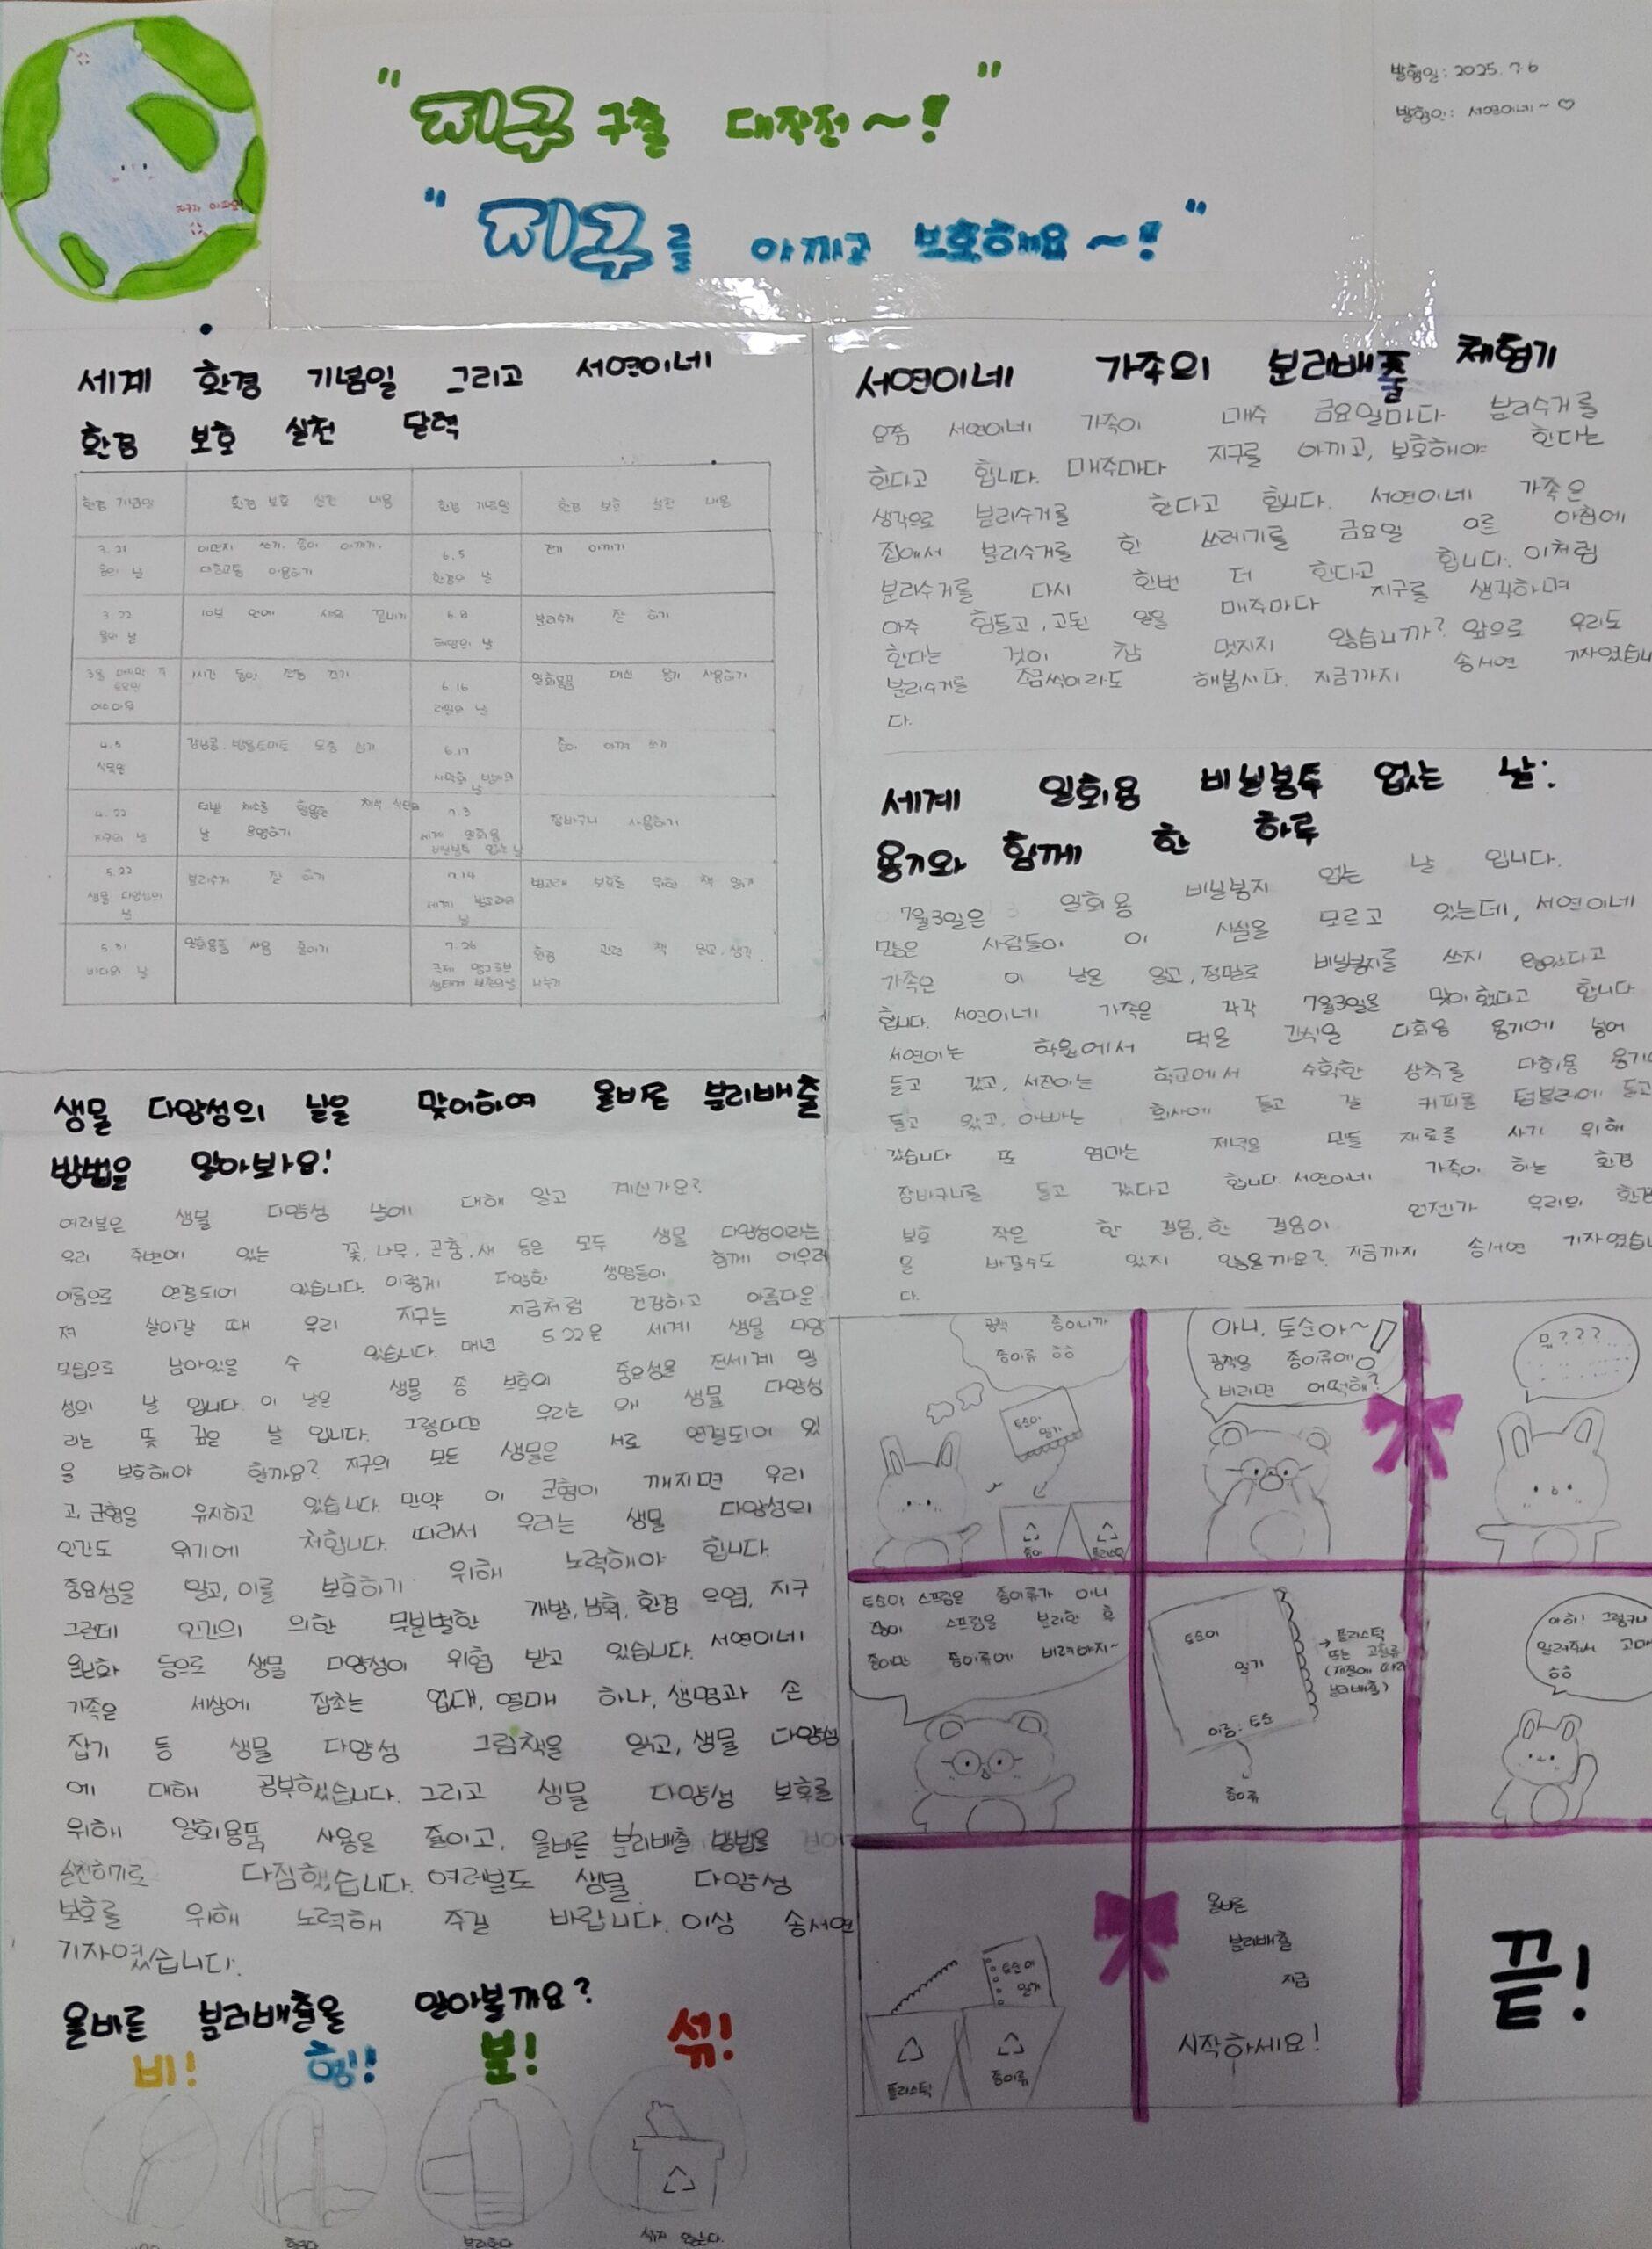 "지구 구출 대작전~!"
"지구를 아끼고 보호해요~!"
발행일: 2025. 7. 6
발행인: 서연이네~♡
지구가 아파요!
세계 환경 기념일 그리고 서연이네
환경 보호 실천 달력
환경 기념일 환경 보호 실천 내용 환경 기념일 환경 보호 실천 내용
3. 21
숲의 날
이면지 쓰기. 종이 아끼기.
대중교통 이용하기
6. 5
환경의 날
전기 아끼기
3. 22
물의 날
10분 안에 샤워 끝내기
6. 8
해양의 날
분리수거 잘 하기
3월 마지막 주
토요일
어스아워
1시간 동안 전등 끄기
6. 16
리필의 날
일회용품 대신 용기 사용하기
4. 5
식목일
강낭콩, 방울토마토 모종 심기
6. 17
사막화 방지의
날
종이 아껴 쓰기
4. 22
지구의 날
텃밭 채소를 활용한 채식 식단의
날 운영하기
7. 3
세계 일회용
비닐봉투 없는 날
장바구니 사용하기
5. 22
생물 다양성의
날
분리수거 잘 하기
7. 14
세계 범고래의
날
범고래 보호를 위한 책 읽기
5. 31
바다의 날
일회용품 사용 줄이기
7. 26
국제 맹그로브
생태계 보존의 날
환경 관련 책 읽고, 생각
나누기
서연이네 가족의 분리배출 체험기
요즘 서연이네 가족이 매주 금요일마다 분리수거를
한다고 합니다. 매주마다 지구를 아끼고, 보호해야 한다는
생각으로 분리수거를 한다고 합니다. 서연이네 가족은
집에서 분리수거를 한 쓰레기를 금요일 이른 아침에
분리수거를 다시 한번 더 한다고 합니다. 이처럼
아주 힘들고, 고된 일을 매주마다 지구를 생각하며
한다는 것이 참 멋지지 않습니까? 앞으로 우리도
분리수거를 조금씩이라도 해봅시다. 지금까지 송서연 기자였습니
다.
세계 일회용 비닐봉투 없는 날:
용기와 함께 한 하루
7월3일은 일회용 비닐봉지 없는 날 입니다.
많은 사람들이 이 사실을 모르고 있는데, 서연이네
가족은 이 날을 알고, 정말로 비닐봉지를 쓰지 않았다고
합니다. 서연이네 가족은 각각 7월3일을 맞이 했다고 합니다.
서연이는 학원에서 먹을 간식을 다회용 용기에 넣어
들고 갔고, 서진이는 학교에서 수확한 상추를 다회용 용기에
들고 왔고, 아빠는 회사에 들고 갈 커피를 텀블러에 들고
갔습니다 또 엄마는 저녁을 만들 재료를 사기 위해
장바구니를 들고 갔다고 합니다. 서연이네 가족이 하는 환경
보호 작은 한 걸음, 한 걸음이 언젠가 우리의 환경
을 바꿀수도 있지 않을까요? 지금까지 송서연 기자였습니
다.
생물 다양성의 날을 맞이하여 올바른 분리배출
방법을 알아보아요!
여러분은 생물 다양성 날에 대해 알고 계신가요?
우리 주변에 있는 꽃, 나무, 곤충, 새 등은 모두 생물 다양성이라는
이름으로 연결되어 있습니다. 이렇게 다양한 생명들이 함께 어우러
져 살아갈 때 우리 지구는 지금처럼 건강하고 아름다운
모습으로 남아있을 수 있습니다. 매년 5.22은 세계 생물 다양
성의 날 입니다. 이 날은 생물 종 보호의 중요성을 전세계 알
리는 뜻 깊은 날 입니다. 그렇다면 우리는 왜 생물 다양성
을 보호해야 할까요? 지구의 모든 생물은 서로 연결되어 있
고, 균형을 유지하고 있습니다. 만약 이 균형이 깨지면 우리
인간도 위기에 처합니다. 따라서 우리는 생물 다양성의
중요성을 알고, 이를 보호하기 위해 노력해야 합니다.
그런데 인간의 의한 무분별한 개발, 남획, 환경 오염, 지구
온난화 등으로 생물 다양성이 위협 받고 있습니다. 서연이네
가족은 세상에 잡초는 없대, 열매 하나, 생명과 손
잡기 등 생물 다양성 그림책을 읽고, 생물 다양성
에 대해 공부했습니다. 그리고 생물 다양성 보호를
위해 일회용품 사용을 줄이고, 올바른 분리배출 방법을
실천하기로 다짐했습니다. 여러분도 생물 다양성
보호를 위해 노력해 주길 바랍니다. 이상 송서연
기자였습니다.
올바른 분리배출을 알아볼까요?
비! 헹! 분! 섞!
헹군다
분리한다
섞지 않는다.
공책 종이니까
종이류 ㅎㅎ
토순이
일기
종이
플라스틱
아니, 토순아~!
공책을 종이류에
버리면 어떡해?
뭐???
토순이 스프링은 종이류가 아니
잖아 스프링을 분리한 후
종이만 종이류에 버려야지~
토순이
일기
이름: 토순
→ 플라스틱
또는 고철류
(재질에 따라
분리배출)
종이류
아하! 그렇구나
알려줘서 고마
ㅎㅎ
토순이
일기
플라스틱
종이류
올바른
분리배출
지금
시작하세요!
끝!